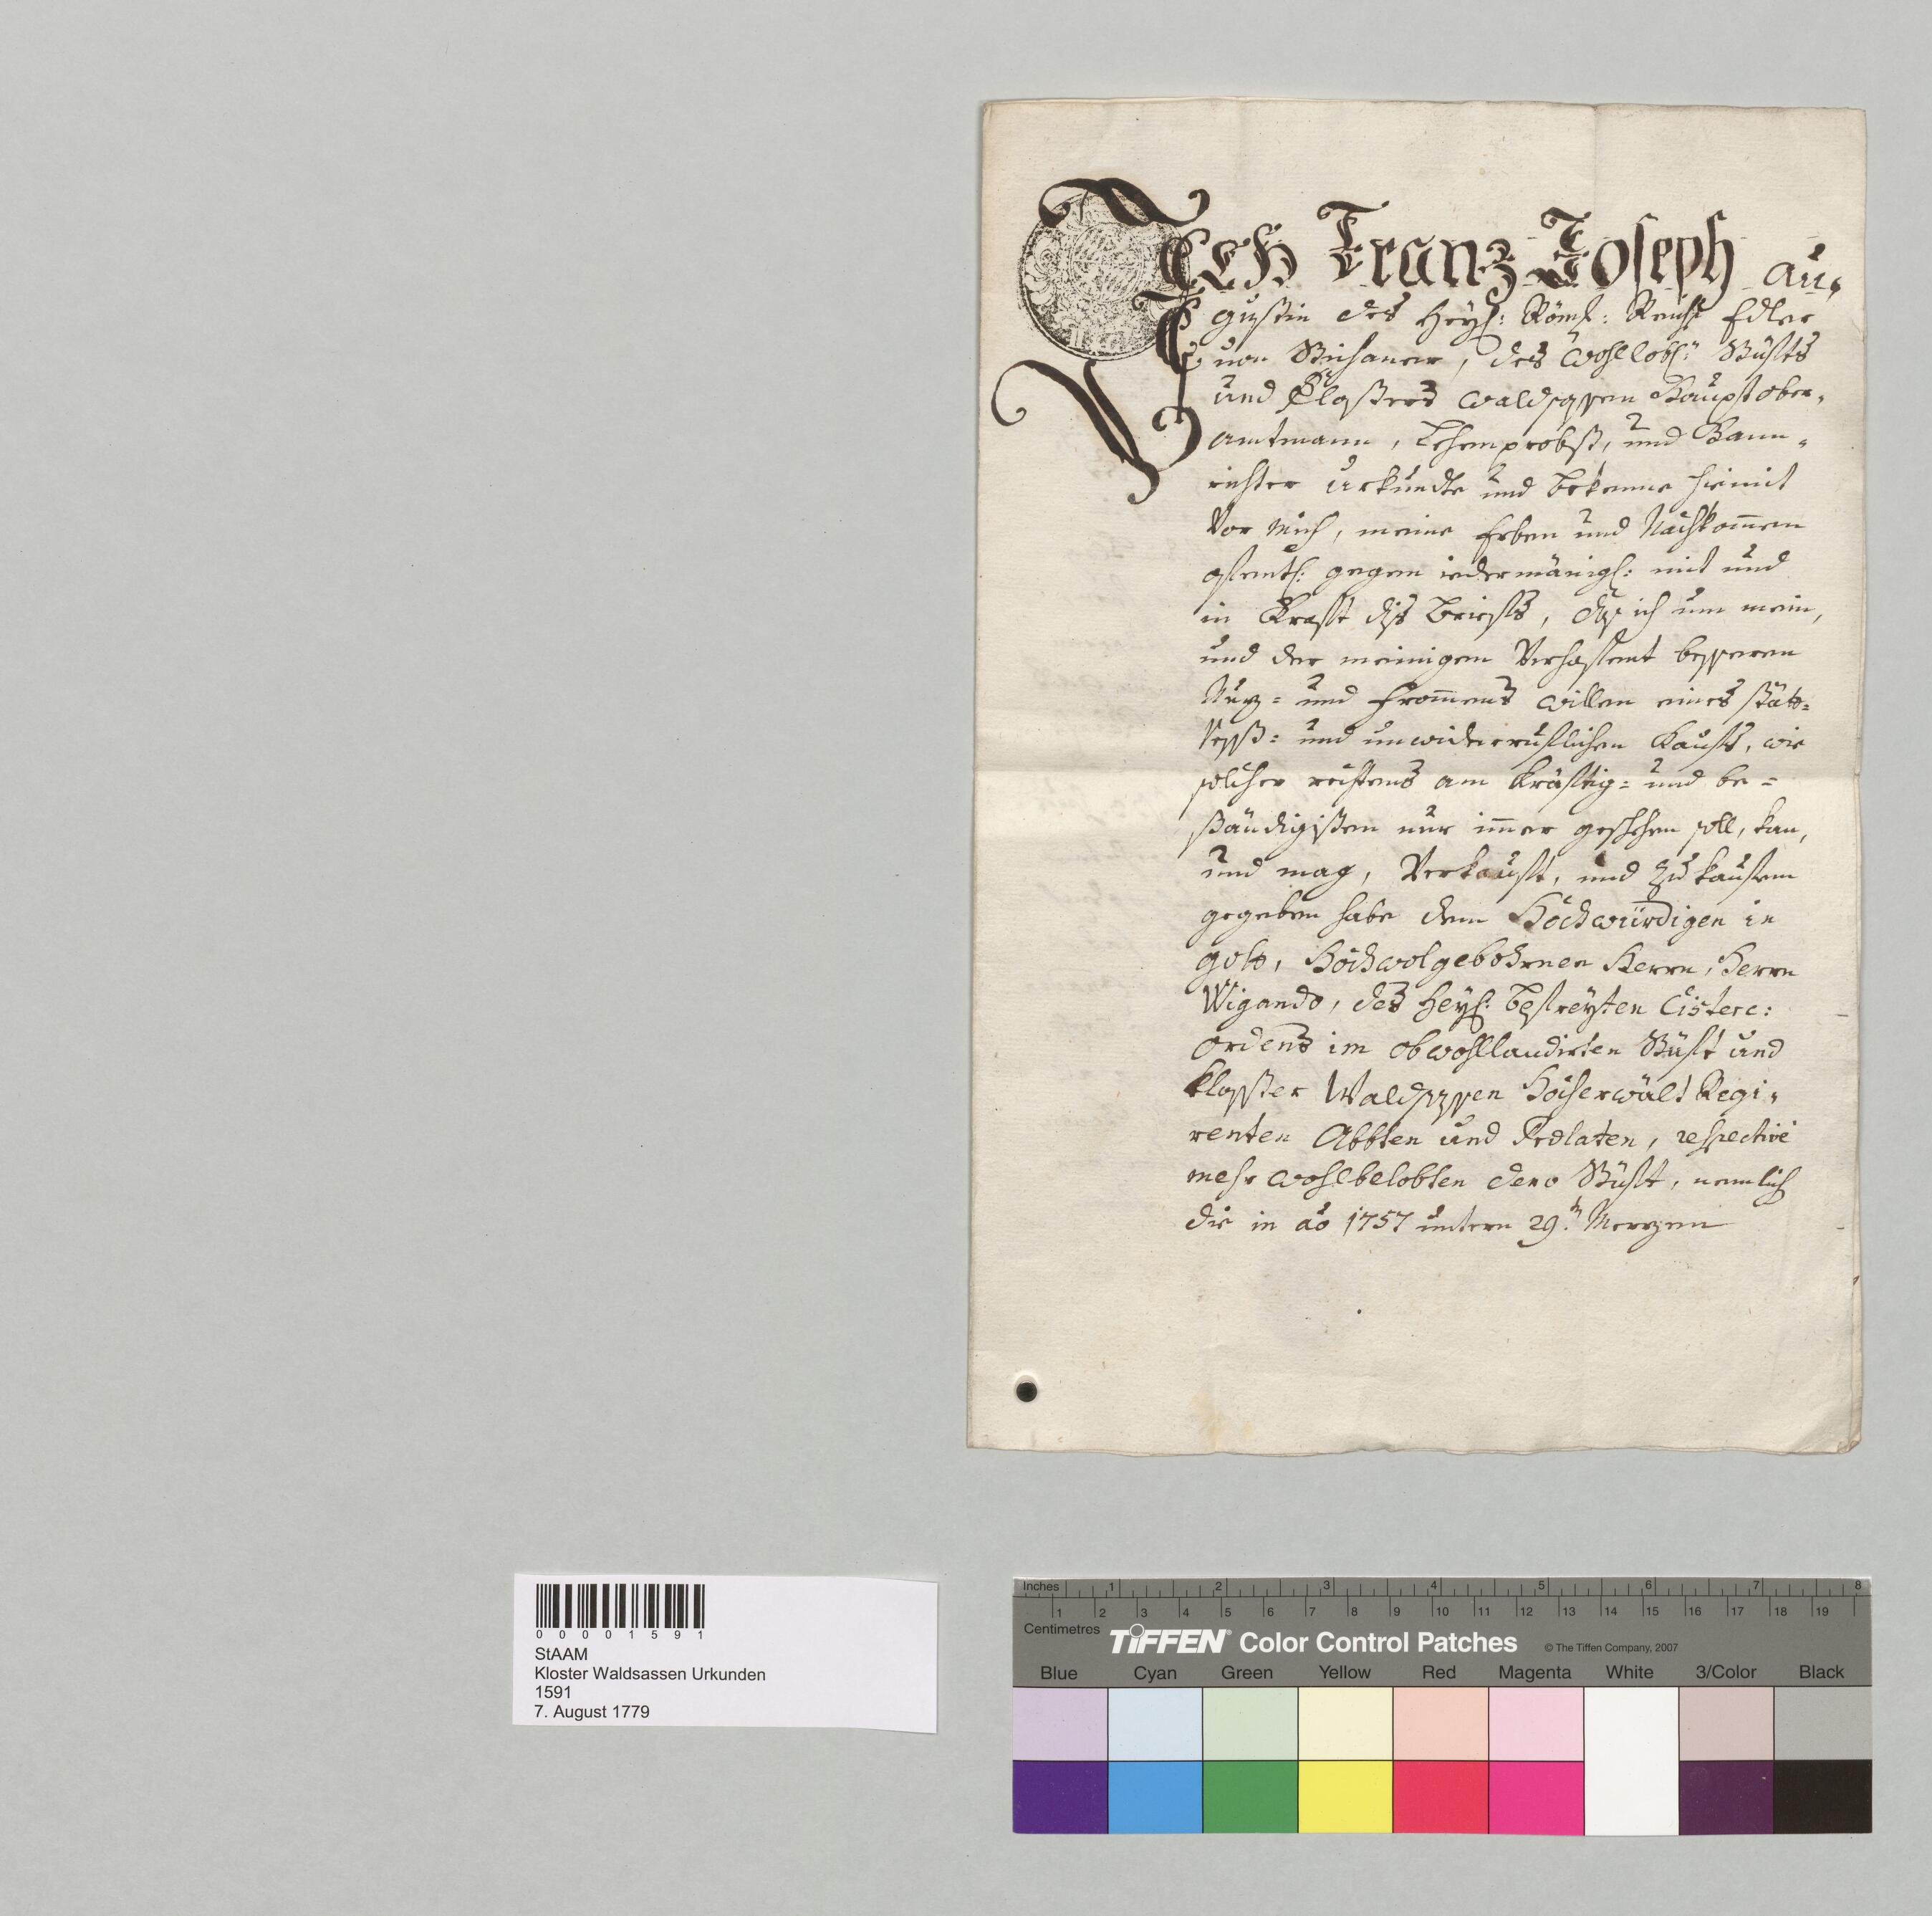 Ich Franz Joseph Au,
gustin des Heyl: Röml: Reichs Edler
von des Wohllobl: Stüffts
und Closters Waldsassen Haubt ober,
amtmann, Lehenprobst, und Bann,
richter Urkunde und bekenne hiemit
Vor mich, meine Erben und Nachkom̄en
gegen iedermänigl: mit und
in Krafft diß brieffs, daß ich um mein,
und der meinigen Verhoffent besseren
Nuz- und from̄ens willen eines stätt-
Vesst- und unwiderrufflichen Kauffs, wie
solcher rechtens am kräfftig- und be-
ständigisten nur im̄er geschehen soll, kan,
und mag, Verkaufft, und zu kauffen
gegeben habe dem Hochwürdigen in
gott, Hochwolgebohrnen Herrn, Herrn
Wigando, des Heyl: befreyten Cisterc:
ordens im obwohllaudirten Stüfft und
Closster Waldsassen Höcherwält Regi,
renten Abbten und Prælaten, respective
mehr wohlbelobten dero Stüfft, nemlich
die in ao 1757 untern 29.t Merzen
0 0 0 0 1 5 9 1
StAAM
Kloster Waldsassen Urkunden
1591
7. August 1779
Inches 1 2 3 4 5 6 7 8
1 2 3 4 5 6 7 8 9 10 11 12 13 14 15 16 17 18 19
Centimetres
TIFFEN® Color Control Patches © The Tiffen Company, 2007
Blue Cyan Green Yellow Red Magenta White 3/Color Black